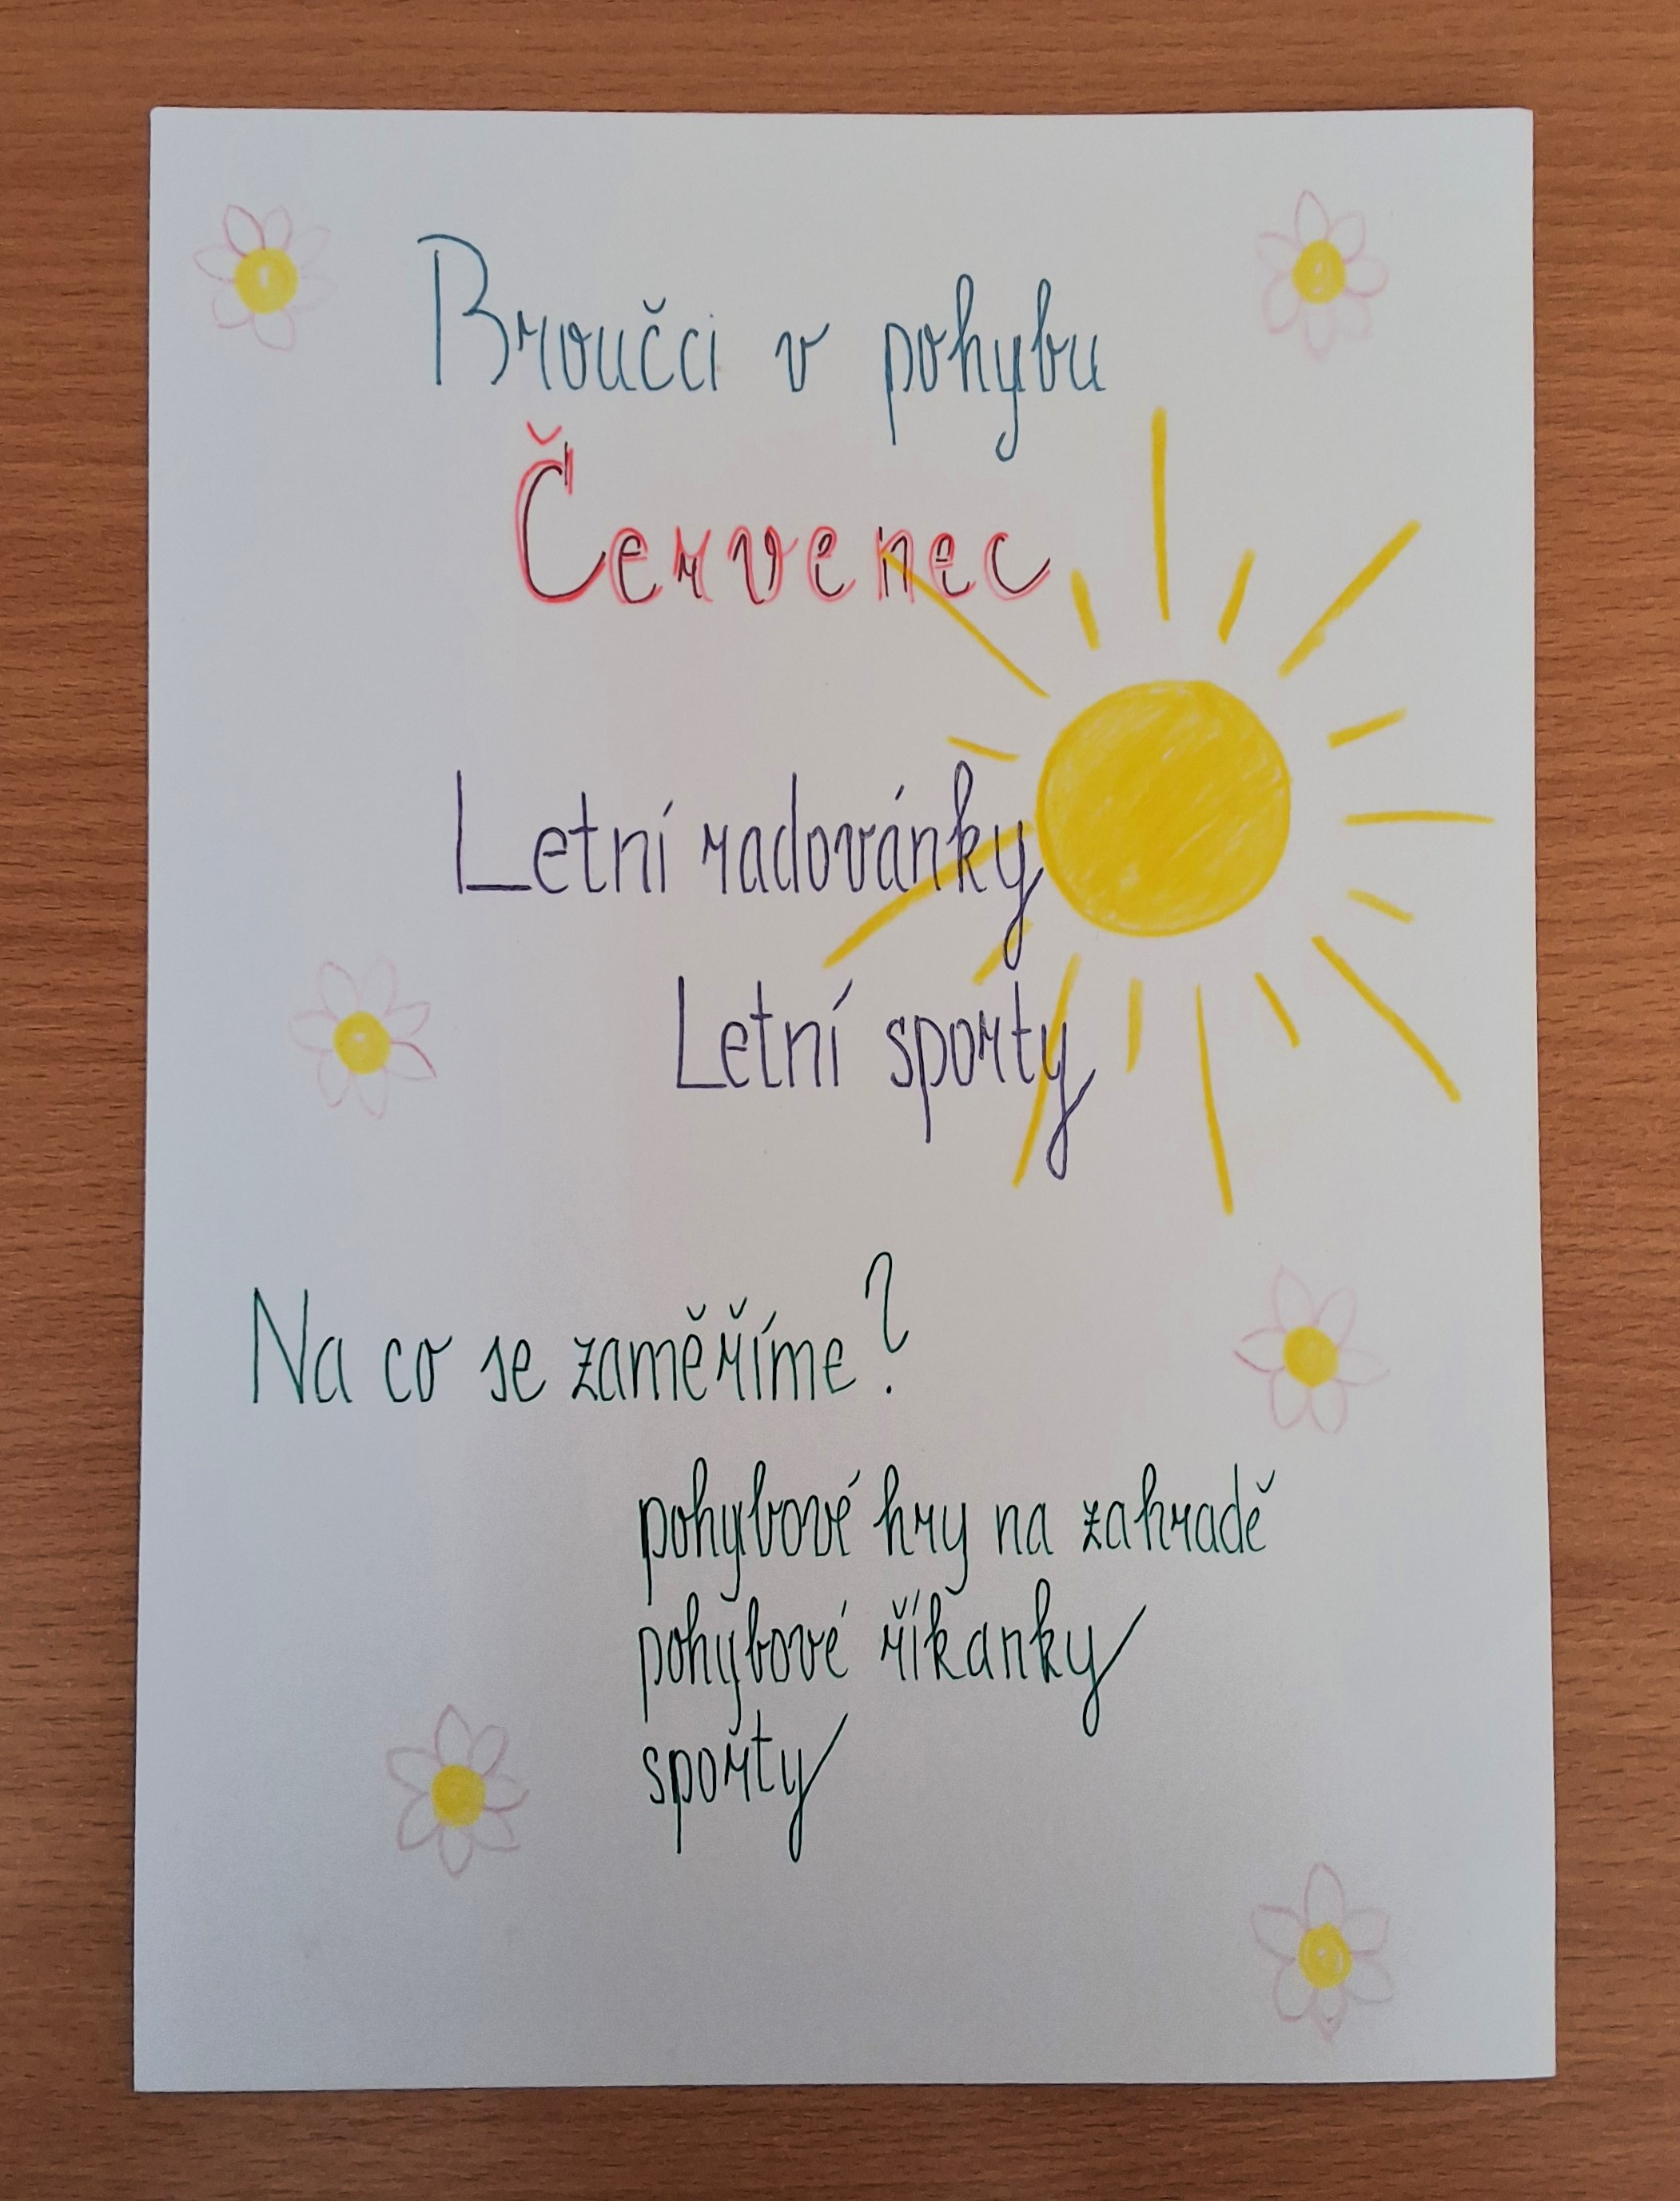 Broučci v pohybu
Červenec
Letní radovánky
Letní sporty
Na co se zaměříme?
pohybové hry na zahradě
pohybové říkanky
sporty